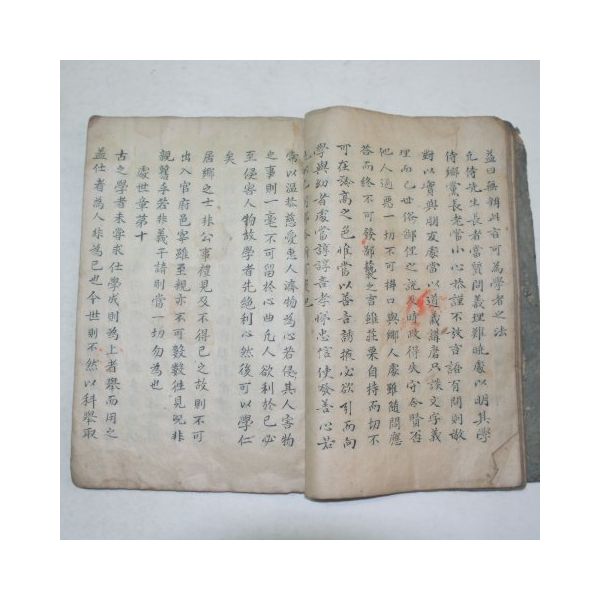 益曰無辨此言可爲學者之法
凡侍先生長者當質問義理難曉處以明其學
侍鄉黨長老當小心恭謹不放言語有問則敬
對以實與朋友處當以道義講磨只談文字義
理而已世俗鄙俚之說及時政得失守令賢否
他人過惡一切不可掛口與鄉人處雖隨問應
答而終不可發鄙褻之言雖莊栗自持而切不
可存矜高之色惟當以善言誘掖必欲引而向
學與幼者處當諄諄言孝悌忠信使發善心若
也
常以溫恭慈愛惠人濟物爲心若侵其人害物
之事則一毫不可留於心曲凡人欲利於己必
至侵害人物故學者先絶利心然後可以學仁
矣
居鄉之士非公事禮見及不得已之故則不可
出入官府邑宰雖至親亦不可數數徃見况非
親舊乎若非義干請則當一切勿爲也
處世章第十
古之學者未嘗求仕學成則爲上者舉而用之
盖仕者爲人非爲己也今世則不然以科舉取